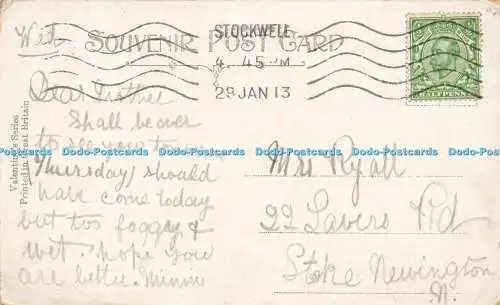 Wed
SOUVENIR POST CARD
STOCKWELL
4 45 PM
29 JAN 13
HALFPENNY
Dear
Shall be over
to see you
Thursday, should
have come today
but too foggy &
wet. hope you
are better. Minnie
Mrs Ryall
22 Lavers Rd
Stoke Newington
N.
Valentine's Series
Printed in Great Britain
Dodo-Postcards Dodo-Postcards Dodo-Postcards Dodo-Postcards